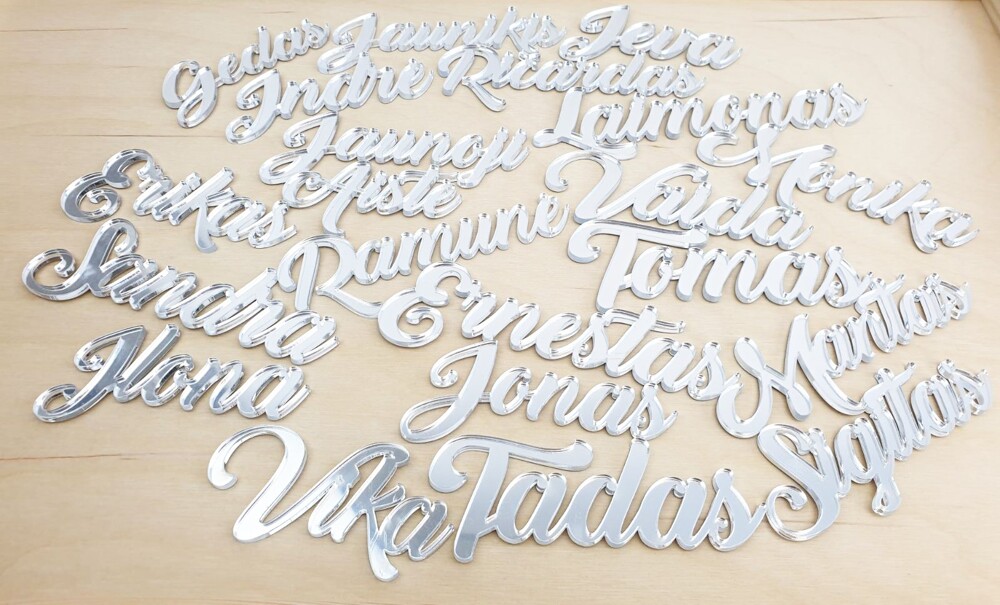 Gedas Jaunikis Ieva
Indrė Ricardas
Laimonas
Jaunoji
Monika
Erikas Aistė Vaida
Ramunė
Sandra Tomas
Ernestas Mantas
Ilona Jonas
Sigitas
Vika Tadas